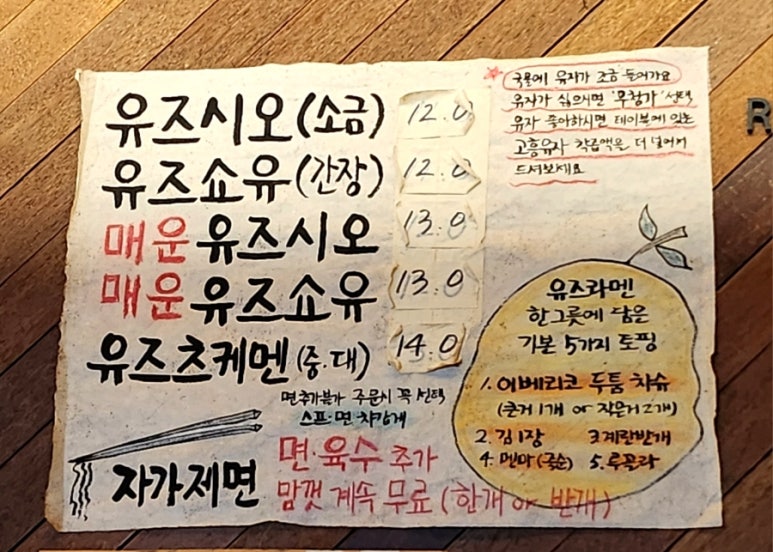 유즈시오(소금) 12.0
유즈쇼유(간장) 12.0
매운 유즈시오 13.0
매운 유즈쇼유 13.0
유즈츠케멘(중.대) 14.0
면추가불가 주문시 꼭 선택
스프·면 차갑게
자가제면
면·육수 추가
맘껏 계속 무료 (한개 or 반개)
국물에 유자가 조금 들어가요
유자가 싫으시면 '무첨가' 선택
유자 좋아하시면 테이블에 있는
고흥유자 착즙액을 더 넣어서
드셔보세요
유즈라멘
한그릇에 담은
기본 5가지 토핑
1. 이베리코 두툼 차슈
(큰거 1개 or 작은거 2개)
2. 김 1장 3. 계란반개
4. 멘마(죽순) 5. 루꼴라
R